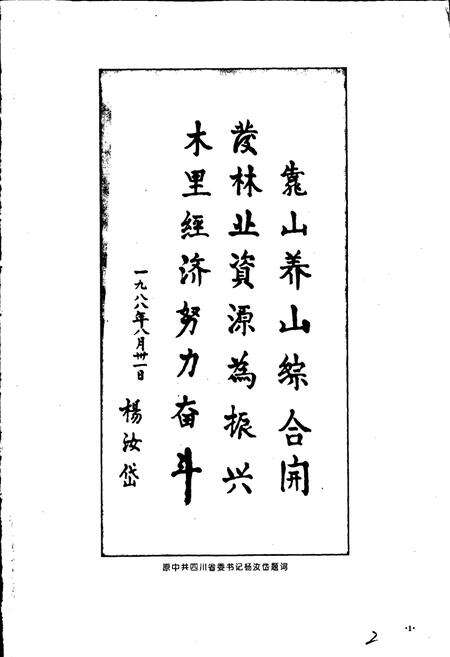 靠山养山綜合開
發林业資源為振兴
木里經济努力奋斗
一九八八年八月卅一日
楊汝岱
原中共四川省委书记杨汝岱题词
2
·1·